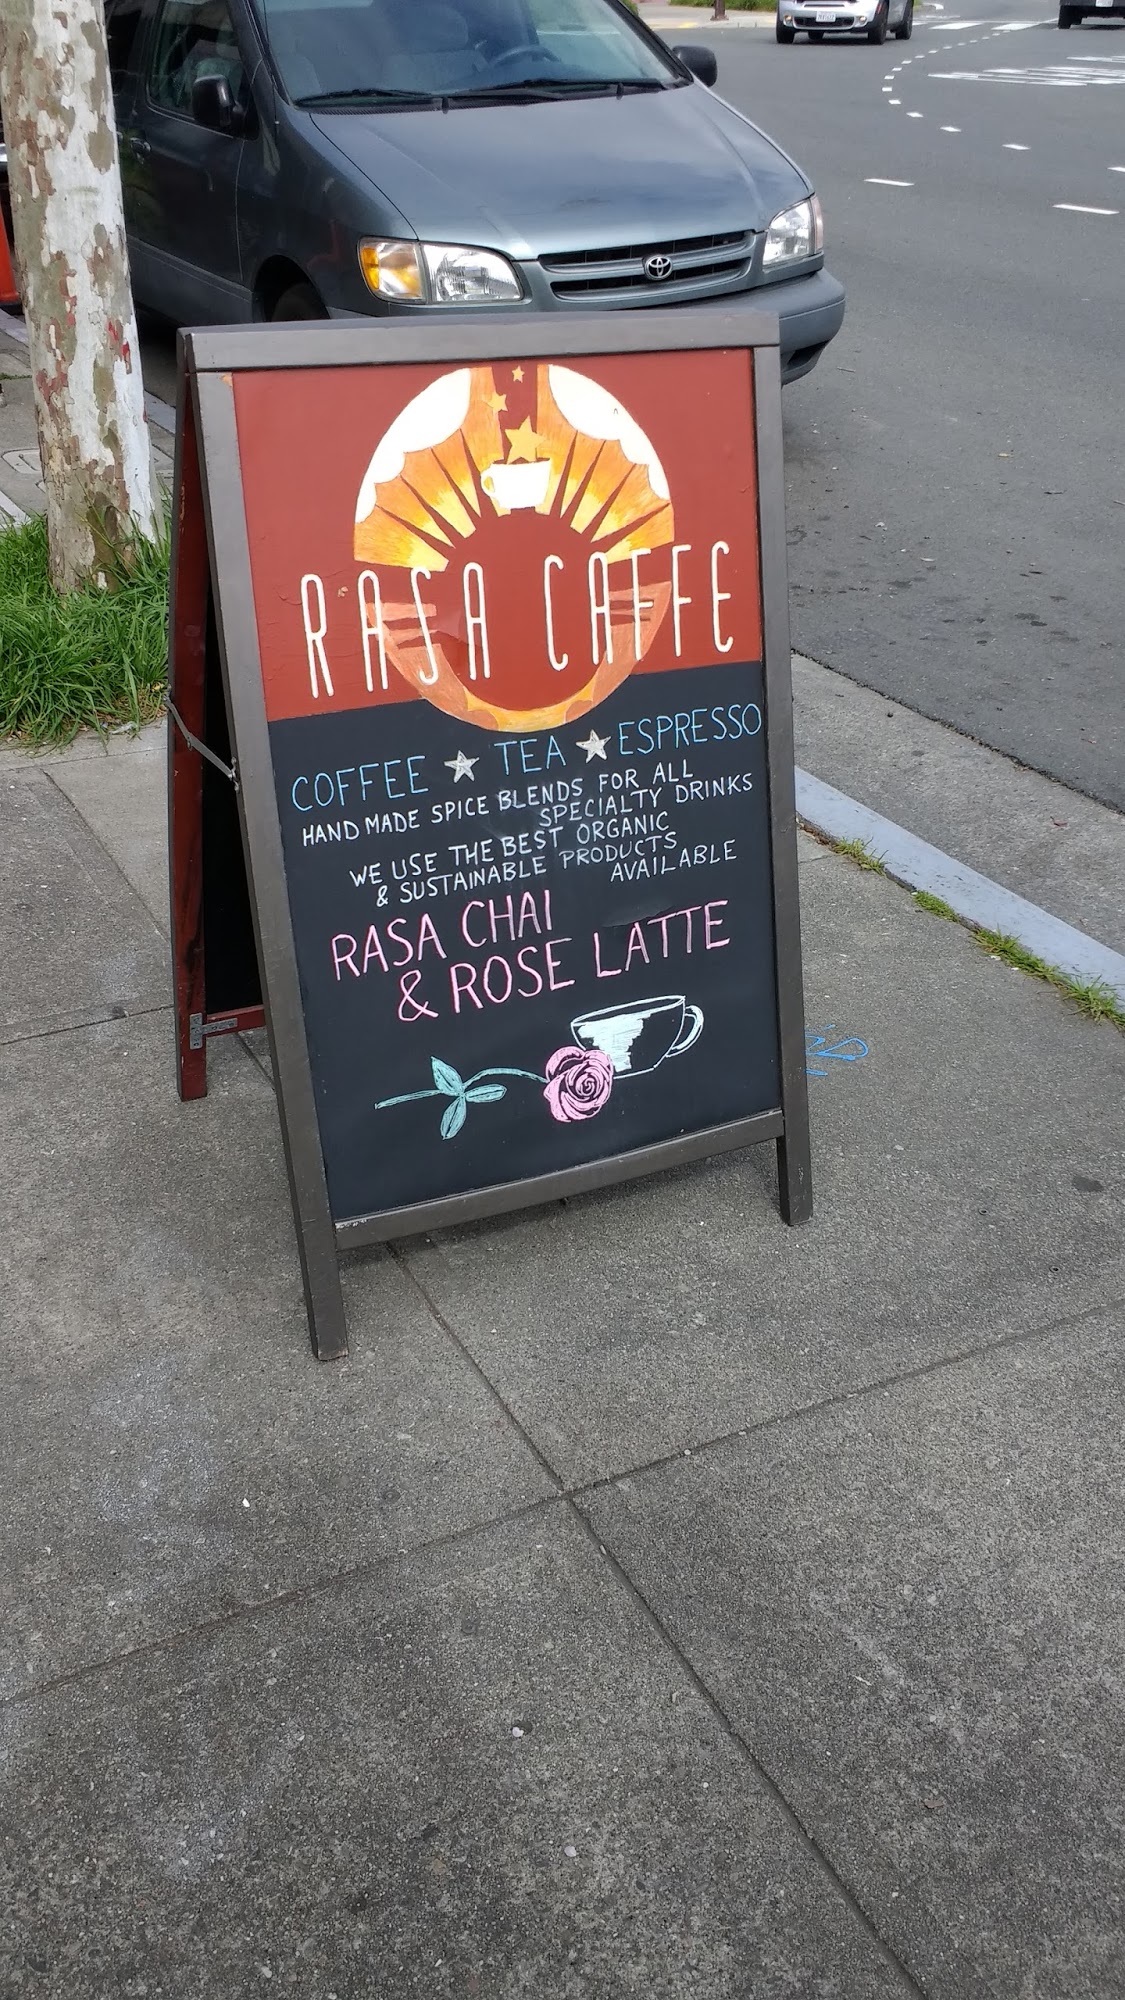 RASA CAFFE
COFFEE ★ TEA ★ ESPRESSO
HAND MADE SPICE BLENDS FOR ALL
SPECIALTY DRINKS
WE USE THE BEST ORGANIC
& SUSTAINABLE PRODUCTS
AVAILABLE
RASA CHAI
& ROSE LATTE